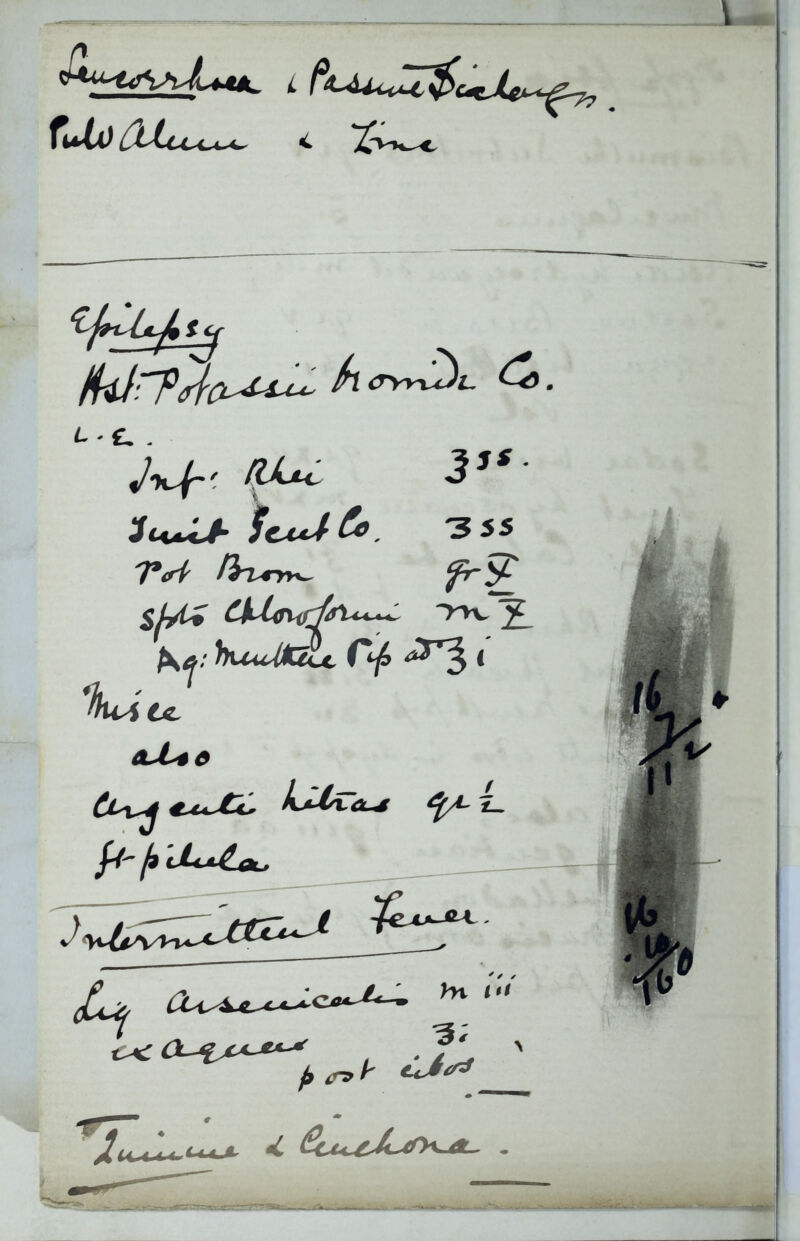 Leucorrhoea & Passive Discharges.
Pulv Alum & Zinc
Epilepsy
Hst: Potassii bromide Co.
L. E.
Inf: Rhei ʒss.
Tinct Gent Co. ʒss
Pot Brom gr X
Spts Chloroformi m X
Aq: Menthae Pip ad ℥i
Misce
also
Argenti Nitras gr ½
ft pilula
16
7
112
Intermittent Fever.
16
10
160
Liq Arsenicalis m iii
ex aquae ℥i
post cibos
Quinine & Cinchona.